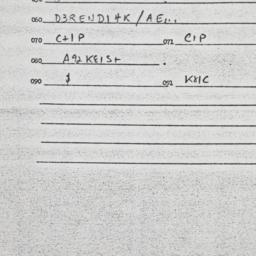 060 D3RENDI4K/AE...
070 C+IP 072 CIP
080 A92KEIST.
090 $ 092 KXIC